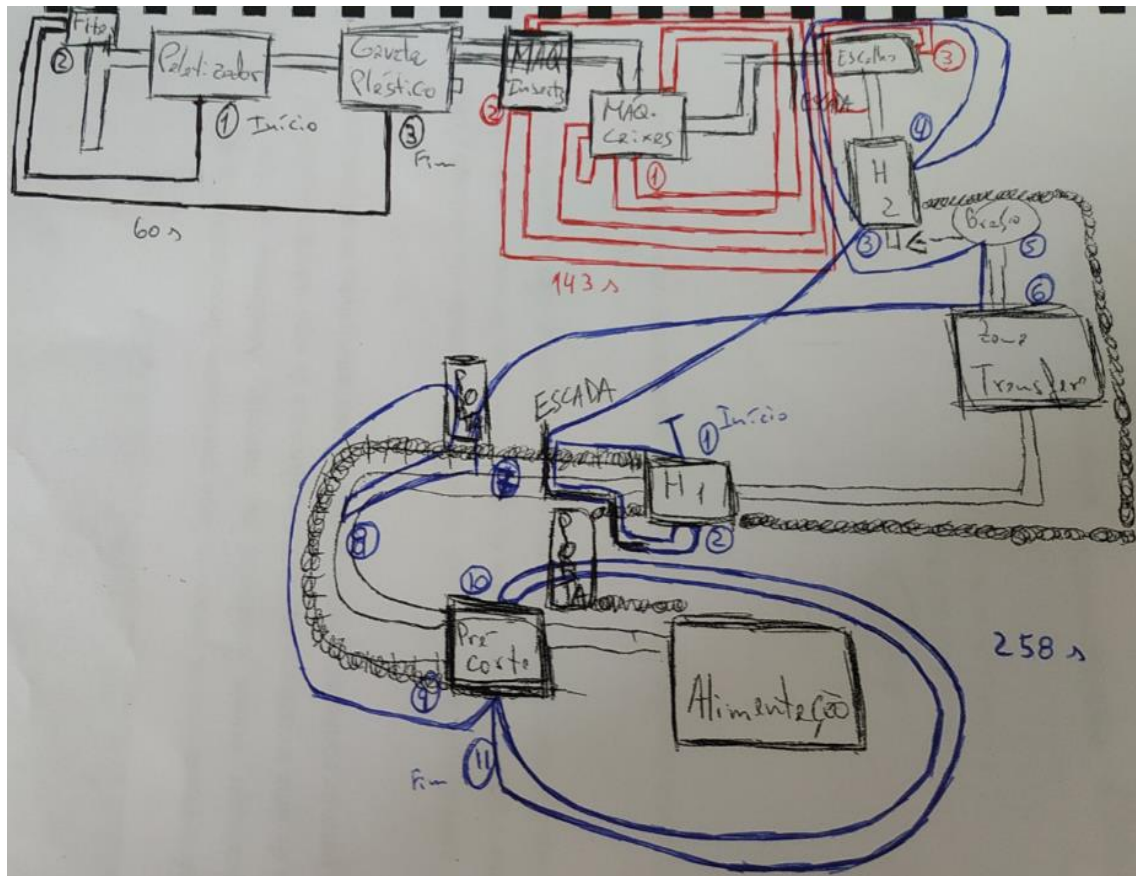 Fita
②
Paletizador
① Início
Gaveta
Plástico
③
Fim
60 s
MÁQ
Inserts
②
MÁQ.
Caixas
①
143 s
Escolha
③
ESCADA
④
H
2
③
⑤
⑥
Zona
Transfer
ESCADA
① Início
H 1
②
⑦
⑧
⑩
PORTA
Pré
corte
⑨
Alimentação
258 s
⑪
Fim